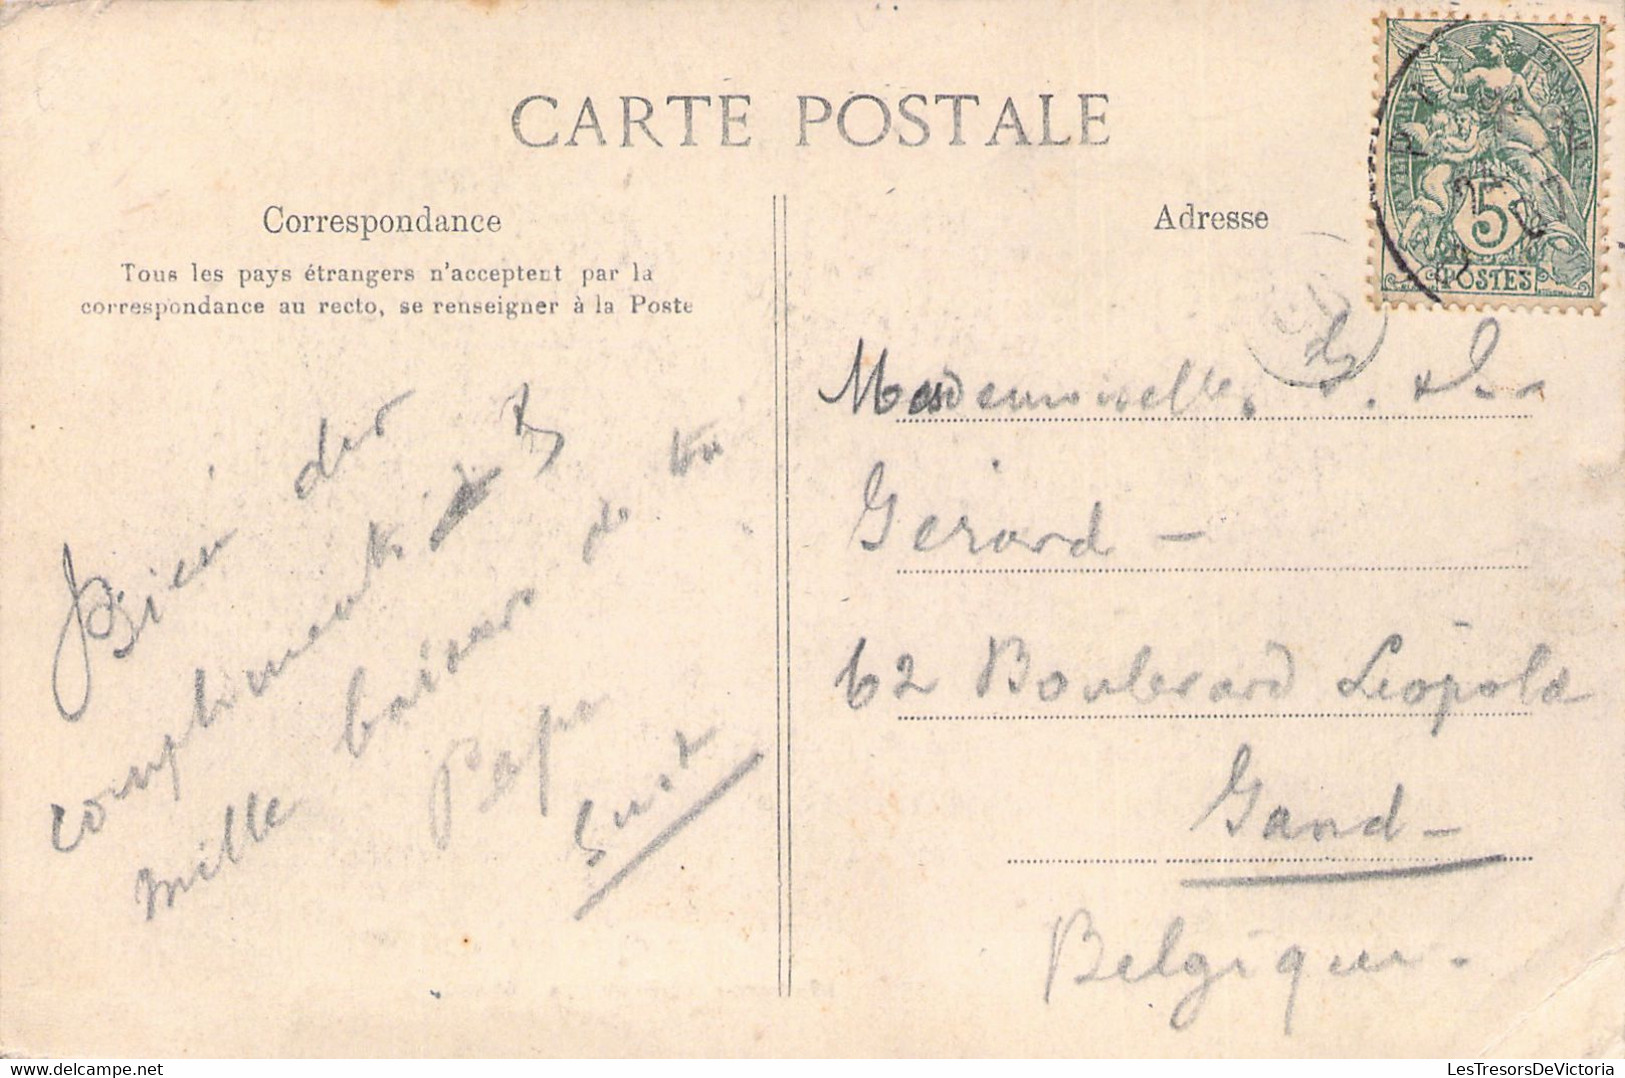 CARTE POSTALE
Correspondance
Tous les pays étrangers n'acceptent par la
correspondance au recto, se renseigner à la Poste
Bien des
compliments de
mille baisers de ton
Papa
Adresse
RÉPUBLIQUE FRANÇAISE
5
POSTES
Mesdemoiselles
Gérard -
62 Boulevard Léopold
Gand -
Belgique.
LesTresorsDeVictoria